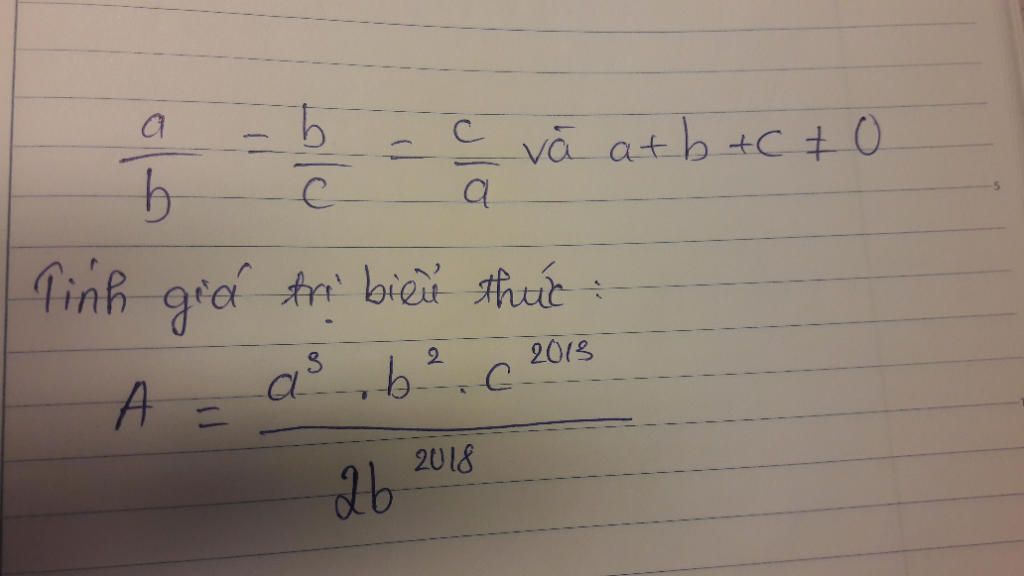 a/b = b/c = c/a và a+b+c ≠ 0
Tính giá trị biểu thức:
A = a³ . b² . c²⁰¹³ / 2b²⁰¹⁸
5